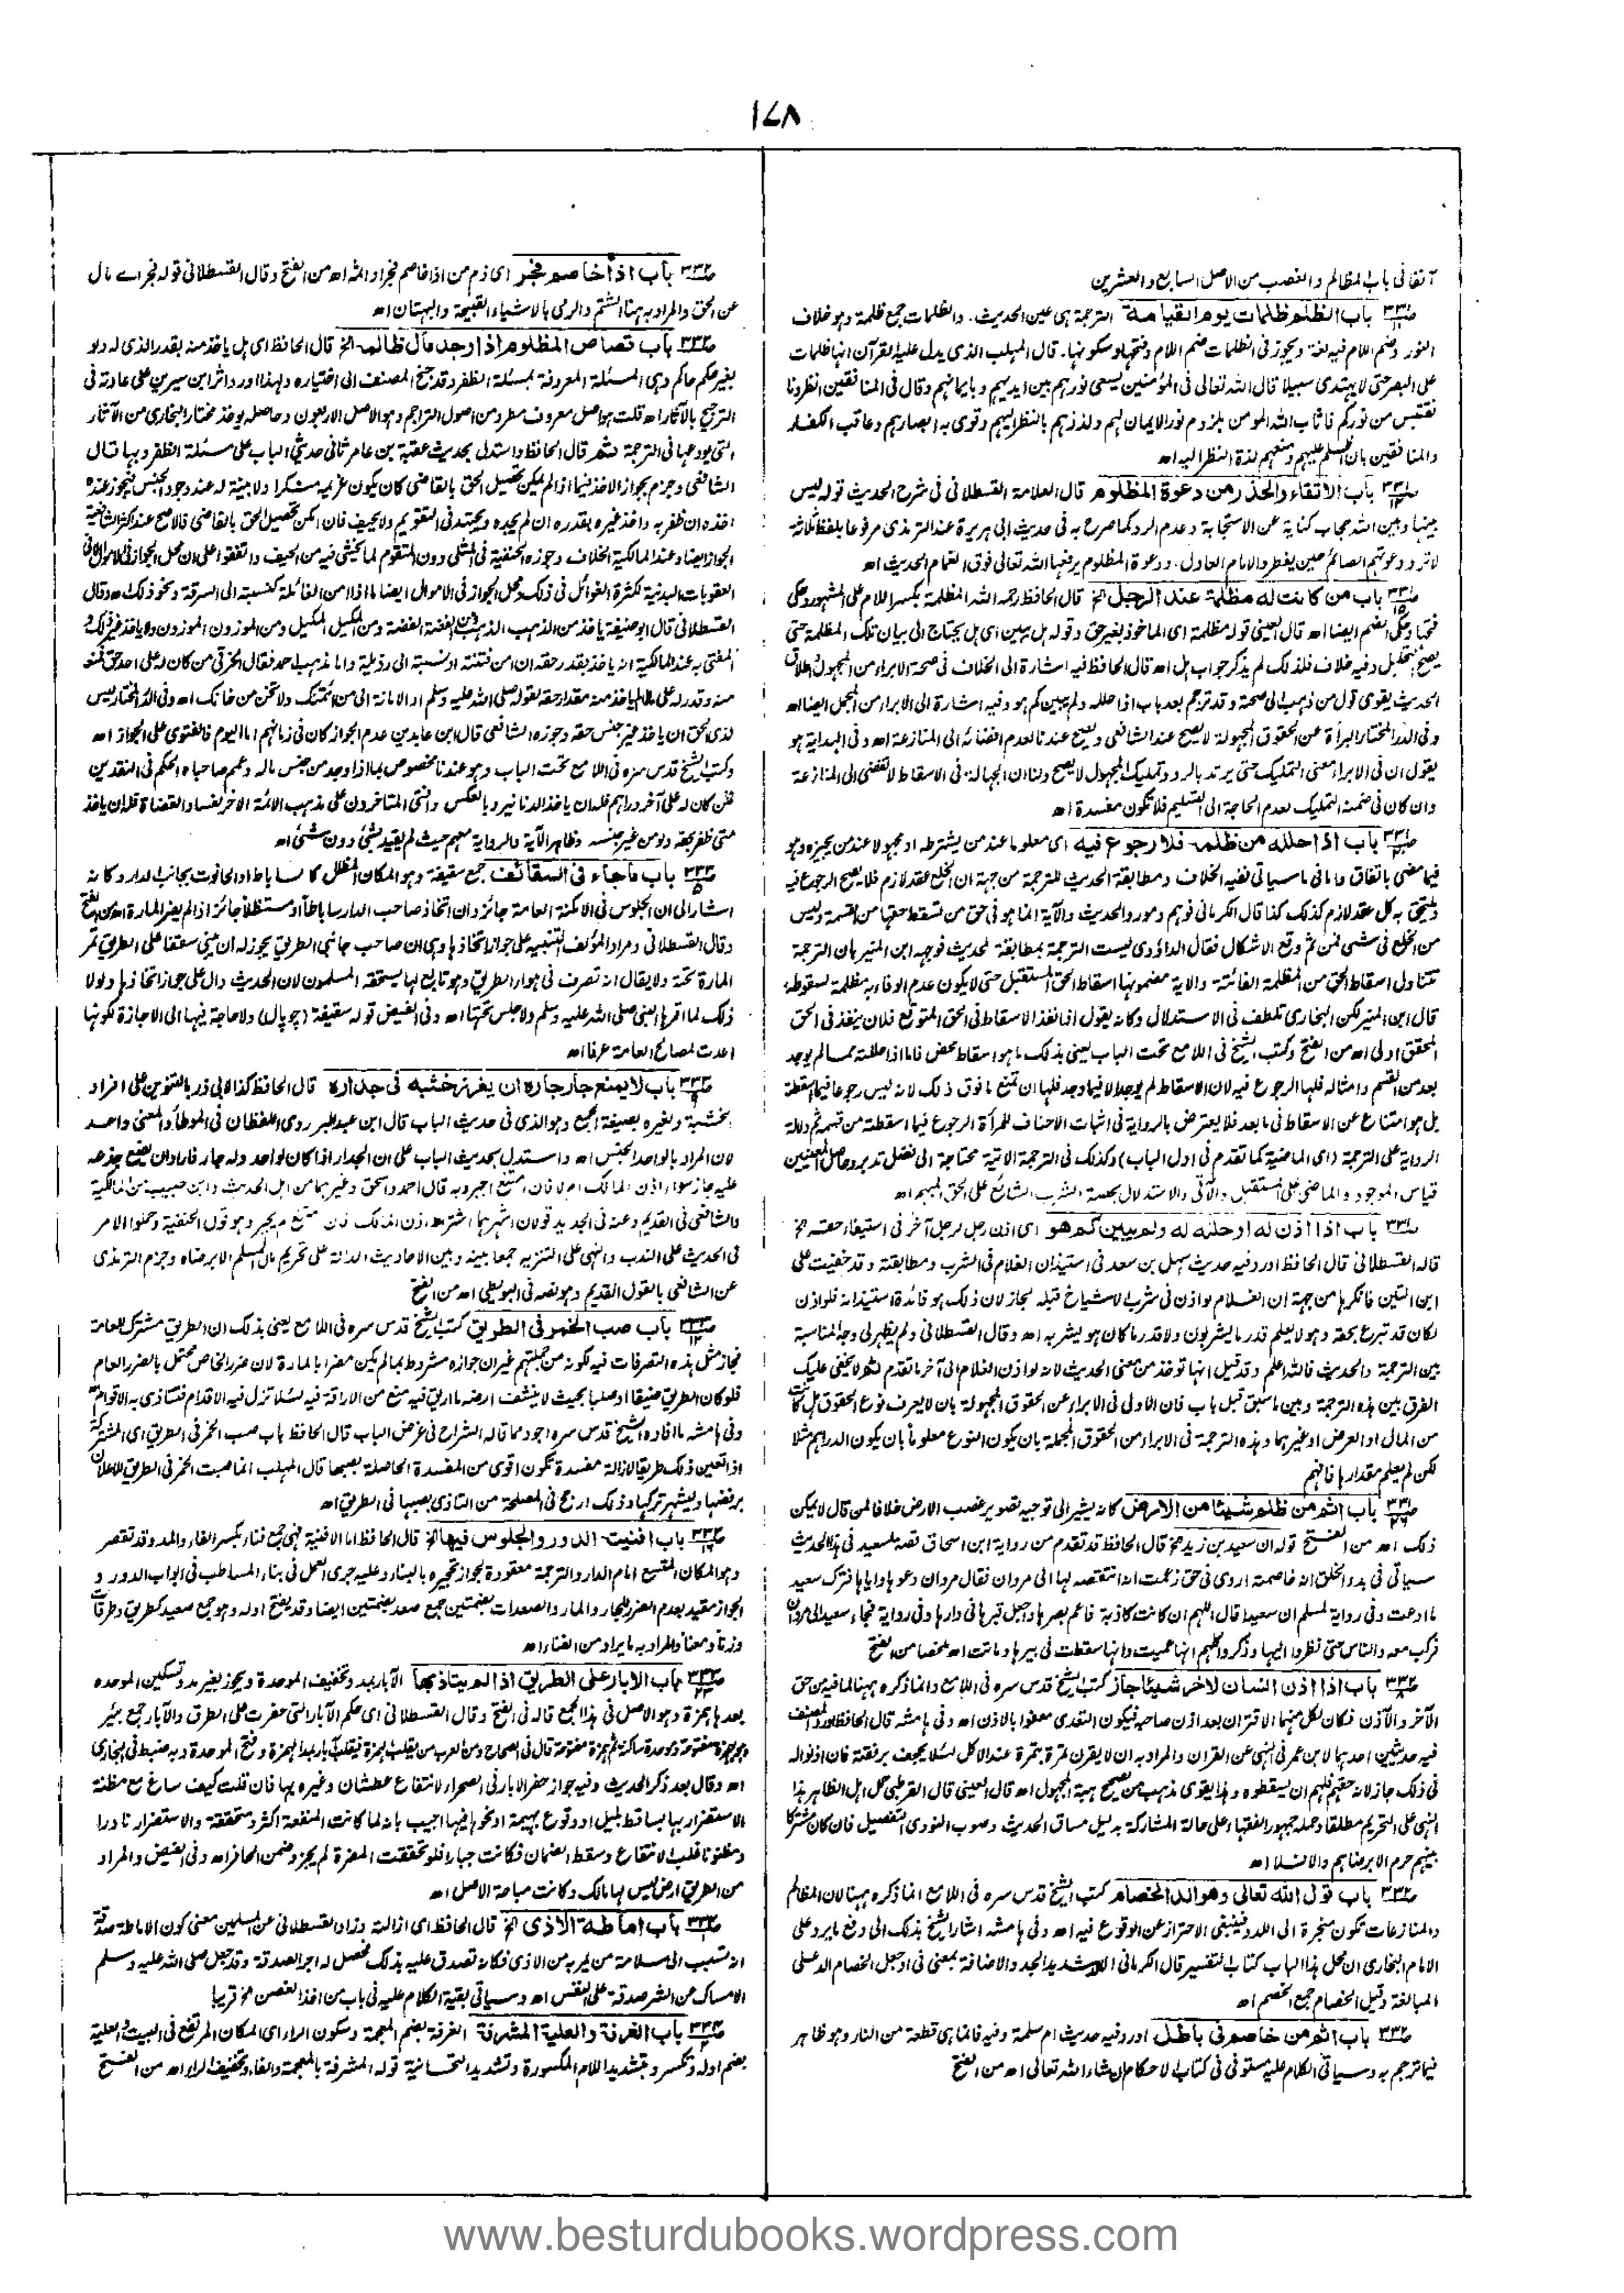 ١٧٨
آنفا فى باب المظالم والغصب من الاصل السابع والعشرين
باب الظلم ظلمات يوم القيامة الترجمة ہى عين الحديث . والظلمات جمع ظلمة وہو خلاف
النور وضم اللام فيه لغة ويجوز فى الظلمات ضم اللام وفتحها وسكونہا . قال المهلب الذى يدل عليه القرآن انہا ظلمات
على البصر حتى لا يہتدى سبيلا قال الله تعالى فى المؤمنين يسعى نورہم بين ايديہم وبايمانہم وقال فى المنافقين انظرونا
نقتبس من نوركم فاثاب الله المومن بلزوم نور الايمان لہم ولذذہم بالنظر اليہم وقوى به ابصارہم وعاقب الكفار
والمنافقين بان اظلم عليہم ومنعہم لذة النظر اليه اھ
باب الاتقاء والحذر من دعوة المظلوم قال العلامة القسطلانى فى شرح الحديث قوله ليس
بينہا وبين الله حجاب كناية عن الاستجابة وعدم الرد كما صرح به فى حديث ابى ہريرة عند الترمذى مرفوعا بلفظ ثلاثة
لا ترد دعوتہم الصائم حين يفطر والامام العادل . ودعوة المظلوم يرفعہا الله تعالى فوق الغمام الحديث اھ
باب من كانت له مظلمة عند الرجل الخ قال الحافظ رحمه الله المظلمة بكسر اللام على المشہور وحكى
فتحہا وحكى بضم ايضا اھ قال العينى قوله مظلمة اى الماخوذ بغير حق وقوله ہل يبين اى ہل يحتاج الى بيان تلك المظلمة حتى
يصح التحليل وفيه خلاف فلذلك لم يذكر جواب ہل اھ قال الحافظ فيه اشارة الى الخلاف فى صحة الابراء من المجہول واطلاق
الحديث يقوى قول من ذہب الى صحته وقد ترجم بعد باب اذا حلله ولم يبين كم ہو وفيه اشارة الى الابراء من المجمل ايضا اھ
وفى الدر المختار البرأة عن الحقوق المجہولة لا يصح عند الشافعى ويصح عندنا لعدم افضائه الى المنازعة اھ وفى الہداية ہو
يقول ان فى الابراء معنى التمليك حتى يرتد بالرد وتمليك المجہول لا يصح ولنا ان الجہالة فى الاسقاط لا تفضى الى المنازعة
وان كان فى ضمنه التمليك لعدم الحاجة الى التسليم فلا تكون مفسدة اھ
باب اذا حلله من ظلمه فلا رجوع فيه اى معلوما عند من يشترطه او مجہولا عند من يجيزہ وہو
فيما مضى باتفاق واما فى ما سياتى ففيه الخلاف ومطابقة الحديث للترجمة من جہة ان الخلع عقد لازم فلا يصح الرجوع فيه
ويلتحق به كل عقد لازم كذلك كذا قال الكرمانى فوہم ومورد الحديث والآية انما ہو فى حق من تسقط حقہا من القسمة وليس
من الخلع فى شئ فمن ثم وقع الاشكال فقال الداؤدى ليست الترجمة بمطابقة للحديث فوجہه ابن المنير بان الترجمة
تتناول اسقاط الحق من المظلمة الفائتة والاية مضمونہا اسقاط الحق المستقبل حتى لا يكون عدم الوفاء به مظلمة لسقوطه
قال ابن المنير لكن البخارى تلطف فى الاستدلال وكانه يقول اذا نفذ الاسقاط فى الحق المتوقع فلان ينفذ فى الحق
المحقق اولى اھ من الفتح وكتب الشيخ فى اللامع تحت الباب يعنى بذلك ما ہو اسقاط محض فاما اذا حللته مما لم يوجد
بعد من القسم وامثاله فلہا الرجوع فيه لان الاسقاط لم يوجد الا فيما وجد فلہا ان تمنع ما فوق ذلك لانه ليس رجوعا فيما اسقطته
بل ہو امتناع عن الاسقاط فى ما بعد فلا يعترض بالرواية فى اثبات الاحناف للمرأة الرجوع فيما اسقطته من قسمہ ثم دلالة
الرواية على الترجمة (اى الماضية كما تقدم فى اول الباب) وكذلك فى الترجمة الاتية محتاجة الى فضل تدبر وحاصل المعنيين
قياس الموجود والماضى على المستقبل والآتى والاستدلال بحصة الشرب الشائع على الحق المبہم اھ
باب اذا اذن له او حلله له ولم يبين كم هو اى اذن رجل لرجل آخر فى استيفاء حقه الخ
قاله القسطلانى قال الحافظ اورد فيه حديث سہل بن سعد فى استيذان الغلام فى الشرب ومطابقته وقد خفيت على
ابن التين فانكرہا من جہة ان الغلام لو اذن فى شرب الاشياخ قبله لجاز لان ذلك ہو فائدة استيذانه فلو اذن
لكان قد تبرع بحقه وہو لا يعلم قدر ما يشربون ولا قدر ما كان ہو يشربه اھ وقال القسطلانى ولم يظہر لى وجه المناسبة
بين الترجمة والحديث فالله اعلم وقد قيل انہا توخذ من معنى الحديث لانه لو اذن الغلام الى آخر ما تقدم ثم لا يخفى عليك
الفرق بين ہذه الترجمة وبين ما سبق قبل باب فان الاولى فى الابراء عن الحقوق المجہولة بان لا يعرف نوع الحقوق ہل كانت
من المال او العرض او غيرہما وہذه الترجمة فى الابراء من الحقوق المجملة بان يكون النوع معلوما بان يكون الدراہم مثلا
لكن لم يعلم مقدارہا فافہم
باب اثم من ظلم شيئا من الارض كانه يشير الى توجيه تصوير غصب الارض خلافا لمن قال لا يمكن
ذلك اھ من الفتح قوله ان سعيد بن زيد الخ قال الحافظ قد تقدم من رواية ابن اسحاق قصة لسعيد فى ہذا الحديث
سياتى فى بدء الخلق انه خاصمته اروى فى حق زعمت انه انتقصه لہا الى مروان فقال مروان دعوہا واياہا فترك سعيد
ما ادعت وفى رواية لمسلم ان سعيدا قال اللہم ان كانت كاذبة فاعم بصرہا واجعل قبرہا فى دارہا وفى رواية فجاء سعيد الى مروان
فركب معه والناس حتى نظروا اليہا وذكروا كلہم انہا عميت وانہا سقطت فى بيرہا وماتت اھ ملخصا من الفتح
باب اذا اذن انسان لاخر شيئا جاز كتب الشيخ قدس سره فى اللامع وانما ذكره ہہنا لما فيه من حق
الآخر والآذن فكان لكل منہما الاقتران بعد اذن صاحبه فيكون التعدى معفوا بالاذن اھ وفى ہامشه قال الحافظ اورد المصنف
فيه حديثين احدہما لابن عمر فى النہى عن القران والمراد به ان لا يقرن تمرة بتمرة عند الاكل لئلا يجحف برفقته فان اذنوا له
فى ذلك جاز لانه حقہم فلہم ان يسقطوه وہذا يقوى مذہب من يصحح ہبة المجہول اھ قال العينى قال القرطبى حمل اہل الظاہر ہذا
النہى على التحريم مطلقا وحمله جمہور الفقہاء على حالة المشاركة بدليل مساق الحديث وصوب النووى التفصيل فان كان مشتركا
بينہم حرم الا برضاہم والا فلا اھ
باب قول الله تعالى وهو الد الخصام كتب الشيخ قدس سره فى اللامع انما ذكره ہہنا لان المظالم
والمنازعات تكون منجرة الى اللدد فينبغى الاحتراز عن الوقوع فيه اھ وفى ہامشه اشار الشيخ بذلك الى دفع ما يرد على
الامام البخارى ان محل ہذا الباب كتاب التفسير قال الكرمانى الالد شديد الجدد والاضافة بمعنى فى او جعل الخصام الد على
المبالغة وقيل الخصام جمع الخصم اھ
باب اثم من خاصم فى باطل اورد فيه حديث ام سلمة وفيه فانما ہى قطعة من النار وہو ظاہر
فيما ترجم به وسياتى الكلام عليه مستوفى فى كتاب الاحكام ان شاء الله تعالى اھ من الفتح
باب اذا خاصم فجر اى ذم من اذا خاصم فجر او اثمه اھ من الفتح وقال القسطلانى قوله فجر اے مال
عن الحق والمراد به ہہنا الشتم والرمى بالاشياء القبيحة والبہتان اھ
باب قصاص المظلوم اذا وجد مال ظالمه الخ قال الحافظ اى ہل ياخذ منه بقدر الذى له ولو
بغير حكم حاكم وہى المسئلة المعروفة بمسئلة الظفر وقد جنح المصنف الى اختياره ولہذا اورد اثر ابن سيرين على عادته فى
الترجيح بالآثار اھ قلت ہو اصل معروف مطرد من اصول التراجم وہو الاصل الاربعون وحاصله يوخذ مختار البخارى من الآثار
التى يودعہا فى الترجمة ثم قال الحافظ واستدل بحديث عقبة بن عامر ثانى حديثى الباب على مسئلة الظفر وبہا قال
الشافعى وجزم بجواز الاخذ فيما اذا لم يمكن تحصيل الحق بالقاضى كان يكون غريمه منكرا ولا بينة له عند وجود الجنس فيجوز عنده
اخذه ان ظفر به واخذ غيره بقدره ان لم يجده ويجتہد فى التقويم ولا يحيف فان امكن تحصيل الحق بالقاضى فالاصح عند اكثر الشافعية
الجواز ايضا وعند المالكية الخلاف وجوزه الحنفية فى المثلى دون المتقوم لما يخشى فيه من الحيف واتفقوا على ان محل الجواز فى الاموال لا فى
العقوبات البدنية لكثرة الغوائل فى ذلك ومحل الجواز فى الاموال ايضا ما اذا امن الغائلة كنسبته الى السرقة ونحو ذلك اھ وقال
القسطلانى قال ابو حنيفة ياخذ من الذہب الذہب ومن الفضة الفضة ومن المكيل المكيل ومن الموزون الموزون ولا ياخذ غير ذلك
المفتى به عند المالكية انه ياخذ بقدر حقه ان امن فتنة او نسبة الى رذيلة واما مذہب احمد فقال الخرقى من كان له على احد حق فمنعه
منه وقدر له على مال لم ياخذ منه مقدار حقه لقوله صلى الله عليه وسلم اد الامانة الى من ائتمنك ولا تخن من خانك اھ وفى الدر المختار ليس
لذى الحق ان ياخذ غير جنس حقه وجوزه الشافعى قال ابن عابدين عدم الجواز كان فى زمانہم اما اليوم فالفتوى على الجواز اھ
وكتب الشيخ قدس سره فى اللامع تحت الباب وہو عندنا مخصوص بما اذا وجد من جنس ماله وعمم صاحباه الحكم فى النقدين
فمن كان له على آخر دراہم فله ان ياخذ الدنانير وبالعكس وافتى المتاخرون على مذہب الائمة الاخر لفساد القضاة فله ان ياخذ
متى ظفر بحقه ولو من غير جنسه وظاہر الآية والرواية معہم حيث لم يقيد بشئ دون شئ اھ
باب ماجاء فى السقائف جمع سقيفة وہو المكان المظلل كالساباط او الحانوت بجانب الدار وكانه
اشار الى ان الجلوس فى الامكنة العامة جائز وان اتخاذ صاحب الدار ساباطا او مستظلا جائز اذا لم يضر المارة اھ من الفتح
وقال القسطلانى ومراد المؤلف التنبيه على جواز اتخاذہا وہى ان صاحب جانبى الطريق يجوز له ان يبنى سقفا على الطريق تمر
المارة تحته ولا يقال انه تصرف فى ہواء الطريق وہو تابع لہا يستحقه المسلمون لان الحديث دال على جواز اتخاذہا ولولا
ذلك لما اقرہا النبى صلى الله عليه وسلم ولا جلس تحتہا اھ وفى الفيض قوله سقيفة (چوپال) ولا حاجة فيہا الى الاجازة لكونہا
اعدت لمصالح العامة عرفا اھ
باب لا يمنع جار جاره ان يغرز خشبه فى جداره قال الحافظ كذا لابى ذر بالتنوين على افراد
بخشبة ولغيره بصيغة الجمع وہو الذى فى حديث الباب قال ابن عبدالبر روى اللفظان فى الموطأ والمعنى واحد
لان المراد بالواحد الجنس اھ واستدل بحديث الباب على ان الجدار اذا كان لواحد وله جار فاراد ان يضع جذعه
عليه جاز سواء اذن المالك ام لا فان امتنع اجبر وبه قال احمد واسحق وغيرہما من اہل الحديث وابن حبيب من المالكية
والشافعى فى القديم وعنه فى الجديد قولان اشہرہما اشتراط اذن المالك فان امتنع لم يجبر وہو قول الحنفية وحملوا الامر
فى الحديث على الندب والنہى على التنزيه جمعا بينه وبين الاحاديث الدالة على تحريم مال المسلم الا برضاه وجزم الترمذى
عن الشافعى بالقول القديم وہو نصه فى البويطى اھ من الفتح
باب صب الخمر فى الطريق كتب الشيخ قدس سره فى اللامع يعنى بذلك ان الطريق مشترك للعامة
فجاز مثل ہذه التصرفات فيه لكونه من جملتہم غير ان جوازه مشروط بما لم يكن مضرا بالمارة لان ضرر الخاص محتمل بالضرر العام
فلو كان الطريق ضيقا او صلبا بحيث لا ينشف ارضه ما اريق فيه منع من الاراقة فيه لئلا تزل فيه الاقدام فتتاذى به الاقوام
وفى ہامشه ما افاده الشيخ قدس سره اجود مما قاله الشراح فى غرض الباب قال الحافظ باب صب الخمر فى الطريق اى المشتركة
اذا تعين ذلك طريقا لازالة مفسدة تكون اقوى من المفسدة الحاصلة بصبہا قال المہلب انما صبت الخمر فى الطريق للاعلان
برفضہا وليشہر تركہا وذلك ارجح فى المصلحة من التاذى بصبہا فى الطريق اھ
باب افنية الدور والجلوس فيها الخ قال الحافظ اما الافنية فہى جمع فناء بكسر الفاء والمد وقد تقصر
وہو المكان المتسع امام الدار والترجمة معقودة لجواز تحجيره بالبناء وعليه جرى العمل فى بناء المساطب فى ابواب الدور و
الجواز مقيد بعدم الضرر للجار والمار والصعدات بضمتين جمع صعد بضمتين ايضا وقد يفتح اوله وہو جمع صعيد كطريق وطرقات
وزنا ومعنا والمراد به ما يراد من الفناء اھ
باب الابار على الطريق اذا لم يتاذ بها الآبار بمد وتخفيف الموحدة ويجوز بغير مد وتسكين الموحدة
بعدہا ہمزة وہو الاصل فى ہذا الجمع قاله فى الفتح وقال القسطلانى اى حكم الآبار التى حفرت على الطرق والآبار جمع بئر
وہو بہمزة مفتوحة وموحدة ساكنة ثم ہمزة مفتوحة قال فى الصحاح ومن العرب من يقلب الہمزة فيقلب آبار بمد الہمزة وفتح الموحدة وبه ضبط فى البخارى
اھ وقال بعد ذكر الحديث وفيه جواز حفر الابار فى الصحراء لانتفاع عطشان وغيره بہا فان قلت كيف ساغ مع مظنة
الاستضرار بہا بساقط بليل او وقوع بہيمة او نحوہا فيہا اجيب بانه لما كانت المنفعة اكثر ومتحققة والاستضرار نادرا
ومظنونا غلب الانتفاع وسقط الضمان فكانت جبارا فلو تحققت المضرة لم يجز وضمن الحافر اھ وفى الفيض والمراد
من الطريق ارض ليس لہا مالك وكانت مباحة الاصل اھ
باب اماطة الاذى الخ قال الحافظ اى ازالته وزاد القسطلانى عن المسلمين معنى كون الاماطة صدقة
انه تسبب الى سلامة من يمر به من الاذى فكانه تصدق عليه بذلك فحصل له اجر الصدقة وقد جعل صلى الله عليه وسلم
الامساك عن الشر صدقة على النفس اھ وسياتى بقية الكلام عليه فى باب من اخذ الغصن الخ قريبا
باب الغرفة والعلية المشرفة الغرفة بضم المعجمة وسكون الراء اى المكان المرتفع فى البيت والعلية
بضم اوله وتكسر وبتشديد اللام المكسورة وتشديد التحتانية قوله المشرفة بالمعجمة والفاء وتخفيف الراء اھ من الفتح
www.besturdubooks.wordpress.com